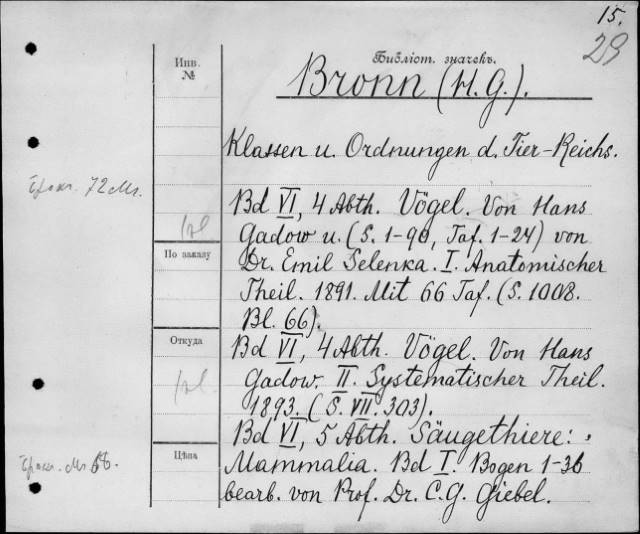 15.
29
Инв.
№
Библіот. значекъ.
Bronn (H. G.).
Klassen u. Ordnungen d. Tier-Reichs.
72 M.
Bd VI, 4 Abth. Vögel. Von Hans
Gadow u. (S. 1-90, Taf. 1-24) von
По заказу
Dr. Emil Selenka. I. Anatomischer
Theil. 1891. Mit 66 Taf. (S. 1008.
Bl. 66).
Откуда
Bd VI, 4 Abth. Vögel. Von Hans
Gadow. II. Systematischer Theil.
1893. (S. VII. 303).
Bd VI, 5 Abth. Säugethiere:
Цѣна
Mammalia. Bd I. Bogen 1-36
bearb. von Prof. Dr. C. G. Giebel.